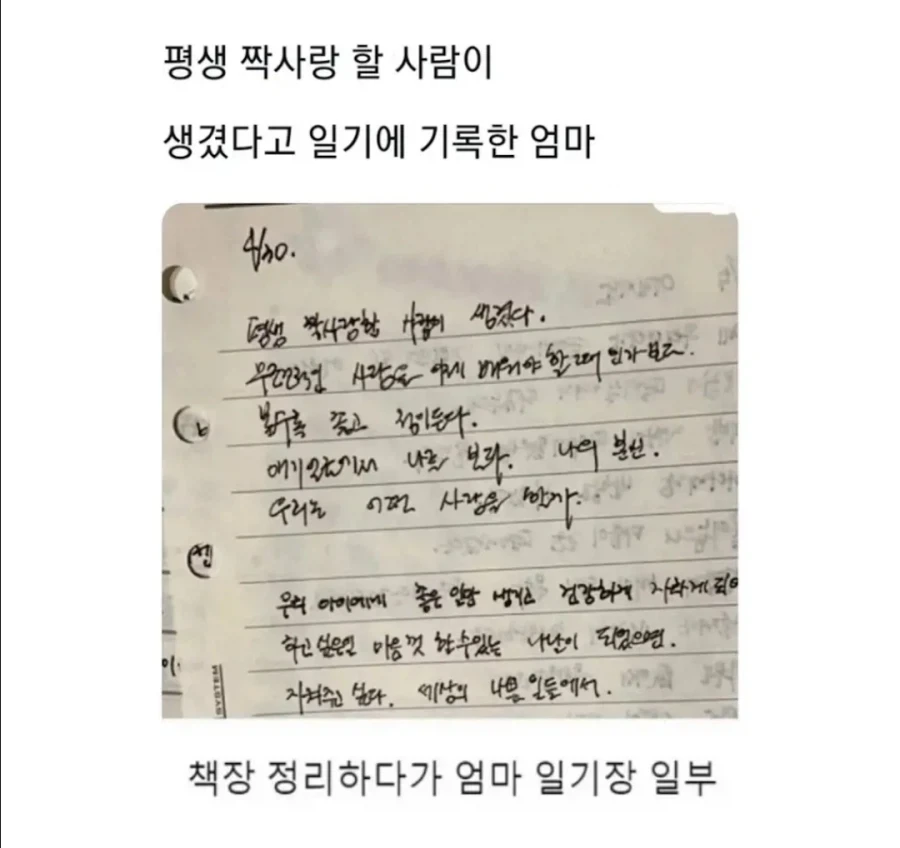 평생 짝사랑 할 사람이
생겼다고 일기에 기록한 엄마
4/30.
평생 짝사랑할 사람이 생겼다.
무조건적인 사랑을 이제 배워야 할 때 인가보다.
볼수록 좋고 정이든다.
애기 나를 보라. 나의 분신.
우리는 어떤 사랑을 할까.
우리 아이에게 좋은 일만 생기고 건강하게 자라게 되어
하고 싶은일 마음껏 할 수 있는 나날이 되었으면.
지켜주고 싶다. 세상의 나쁜 일들에서.
SYSTEM
책장 정리하다가 엄마 일기장 일부